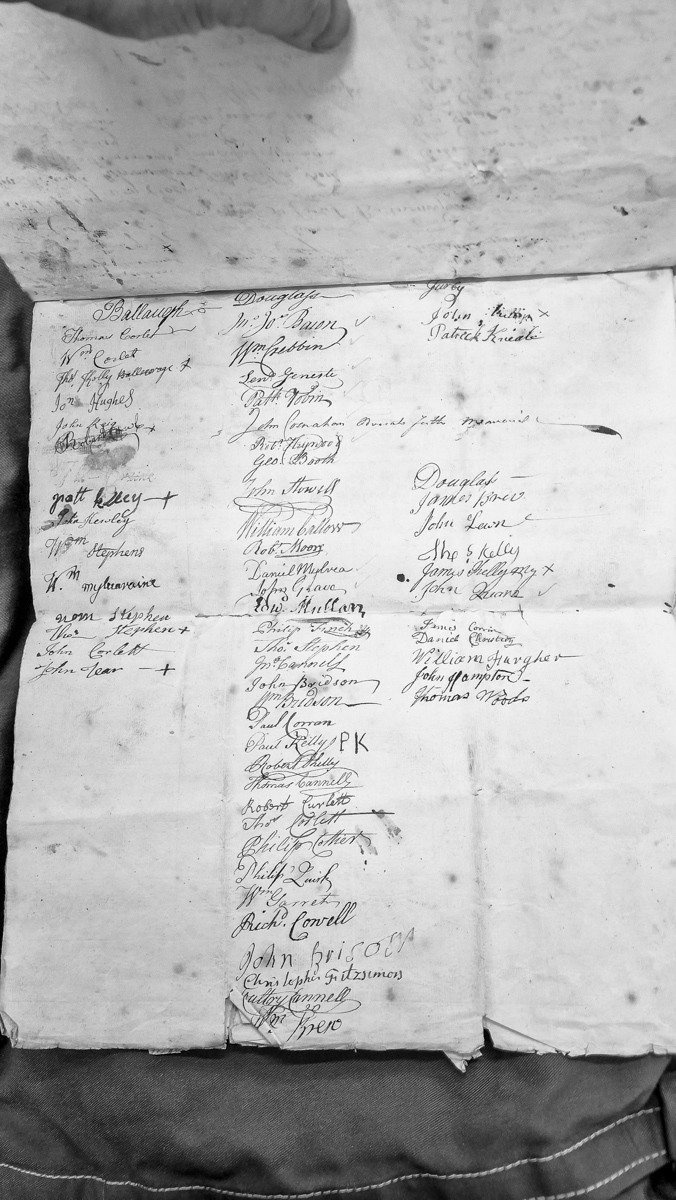 Ballaugh
Thomas Corlet
Wm Corlet
Thos Kelly Ballacorage x
Jon Hughes
John
+
patt kelley +
John Kewley
Wm Stephens
Wm myleavaine
nom Stephen
Thos Stephen +
John Corlett
John Cear +
Douglass
Jno Jos Bacon
Wm Crebbin
Lend Geneste
Patk Tobin
John Cosnahan
Robt Heywood
Geo. Booth
John Stowell
William Callow
Robt Moore
Daniel Mylrea
John Grave
Edwd Mullan
Philip Finch
Thos Stephen
Jno Cannell
John Bridson
Wm Bridson
Paul Corran
Paul Kelly PK
Robert Kelly
Thomas Cannell
Robert Curlett
Thos Corlett
Philip Cather
Philip Quirk
Wm Garret
Richd. Cowell
John Brison
Christopher Fitzsimons
Cannell
Wm Krew
Jurby
John x
Patrick
Douglass
James Brew
John Lewn
Thos Kelly
James Kelly my x
John
James Corrin
Daniel
William Fargher
John Hampton
Thomas Woods